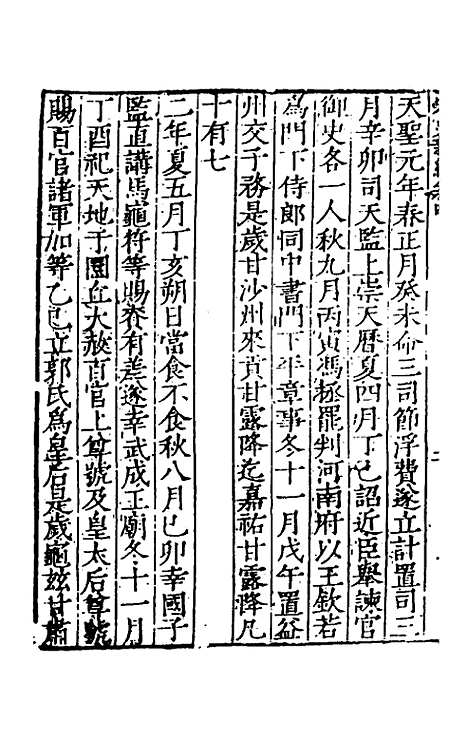 天聖元年春正月癸未命三司節浮費遂立計置司三
月辛卯司天監上崇天曆夏四月丁巳詔近臣舉諫官
御史各一人秋九月丙寅馮拯罷判河南府以王欽若
為門下侍郎同中書門下平章事冬十一月戊午置益
州交子務是歲甘沙州來貢甘露降迄嘉祐甘露降凡
十有七
二年夏五月丁亥朔日當食不食秋八月己卯幸國子
監直講馬龜符等賜賚有差遂幸武成王廟冬十一月
丁酉祀天地于圜丘大赦百官上尊號及皇太后尊號
賜百官諸軍加等乙巳立郭氏為皇后是歲龜茲甘肅